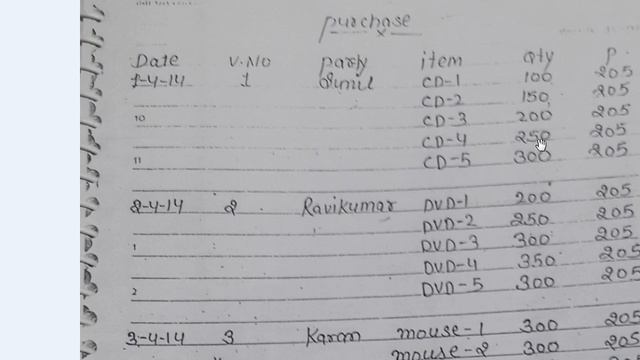 purchase
Date V.No party item Qty P.
1-4-14 1 Sunil CD-1 100 205
CD-2 150 205
10 CD-3 200 205
CD-4 250 205
11 CD-5 300 205
2-4-14 2 Ravikumar DVD-1 200 205
DVD-2 250 205
1 DVD-3 300 205
DVD-4 350 205
2 DVD-5 300 205
3-4-14 3 Karan mouse-1 300 205
mouse-2 300 205